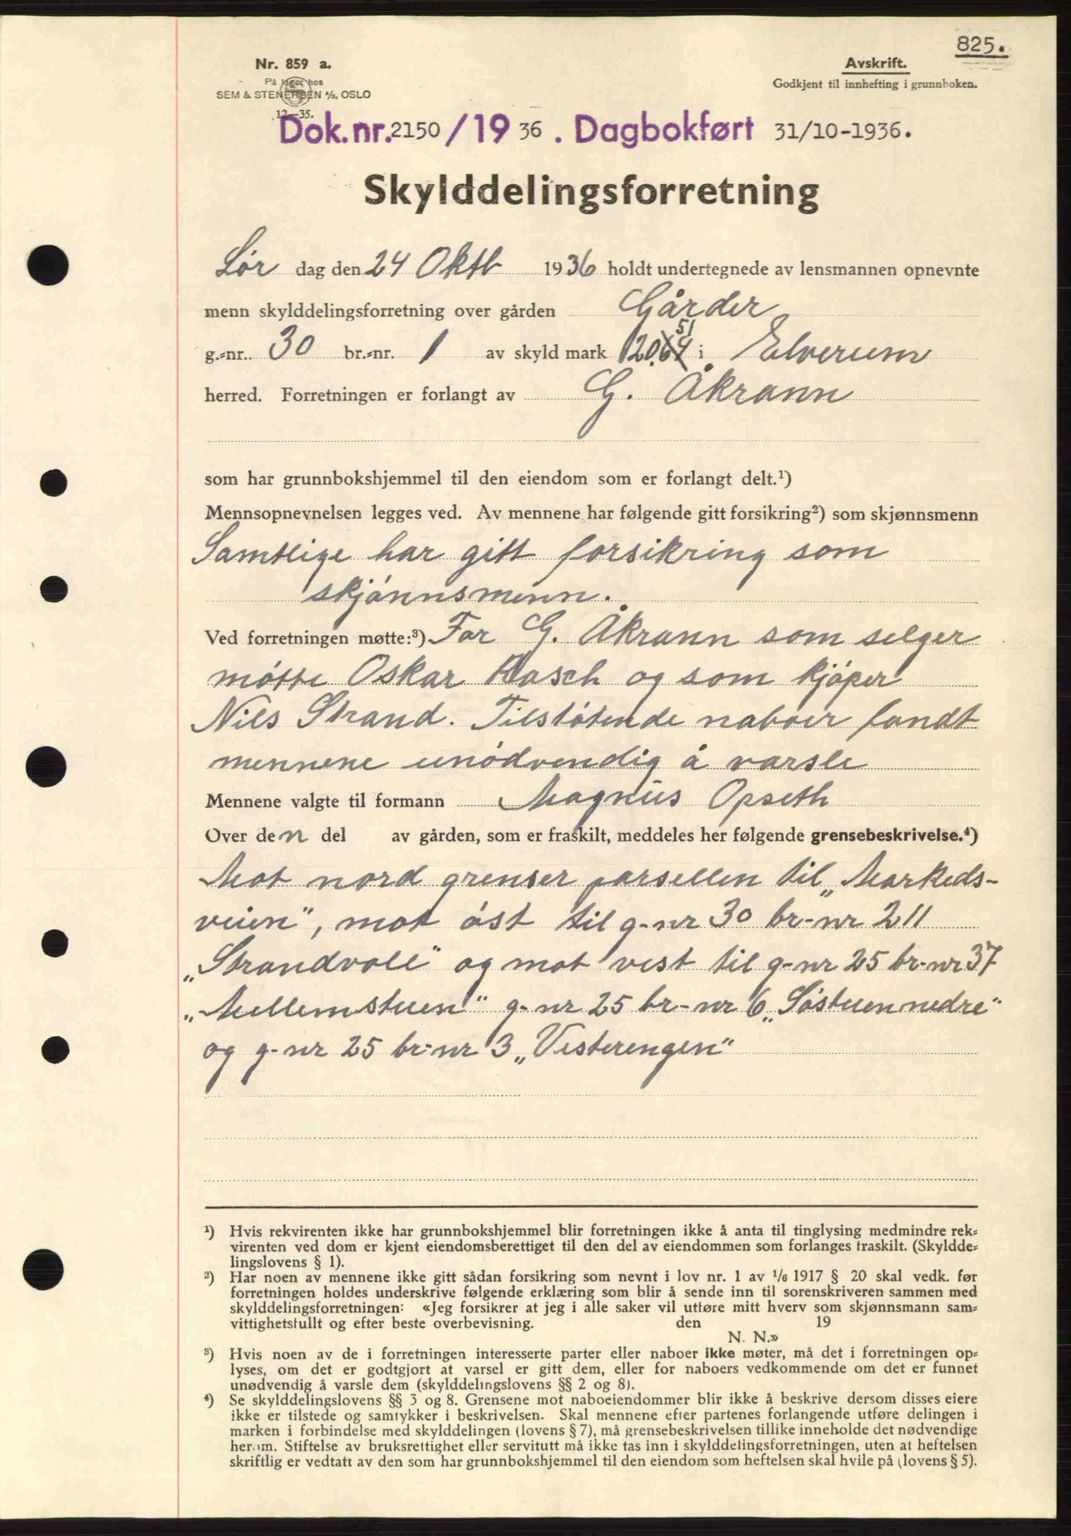 825.
Nr. 859 a.
På lager hos
SEM & STENERSEN A/S, OSLO
12—35.
Avskrift.
Godkjent til innhefting i grunnboken.
Dok.nr. 2150 / 19 36 . Dagbokført 31/10-1936.
Skylddelingsforretning
Lør dag den 24 Oktb 1936 holdt undertegnede av lensmannen opnevnte
menn skylddelingsforretning over gården Gårder
51
g.-nr. 30 br.-nr. 1 av skyld mark 120,64 i Elverum
herred. Forretningen er forlangt av G. Åkrann
som har grunnbokshjemmel til den eiendom som er forlangt delt.¹)
Mennsopnevnelsen legges ved. Av mennene har følgende gitt forsikring²) som skjønnsmenn
Samtlige har gitt forsikring som
skjønnsmenn.
Ved forretningen møtte:³) For G. Åkrann som selger
møtte Oskar Aasch og som kjøper
Nils Strand. Tilstøtende naboer fandt
mennene unødvendig å varsle
Mennene valgte til formann Magnus Opseth
Over den del av gården, som er fraskilt, meddeles her følgende grensebeskrivelse.⁴)
Mot nord grenser parsellen til „Markeds-
veien", mot øst til g-nr 30 br-nr 211
„Strandvoll" og mot vest til g-nr 25 br-nr 37
„Mellemstuen" g-nr 25 br-nr 6 „Søstuen nedre"
og g-nr 25 br-nr 3 „Vesterengen"
¹) Hvis rekvirenten ikke har grunnbokshjemmel blir forretningen ikke å anta til tinglysing medmindre rek-
virenten ved dom er kjent eiendomsberettiget til den del av eiendommen som forlanges fraskilt. (Skyldde-
lingslovens § 1).
²) Har noen av mennene ikke gitt sådan forsikring som nevnt i lov nr. 1 av 1/6 1917 § 20 skal vedk. før
forretningen holdes underskrive følgende erklæring som blir å sende inn til sorenskriveren sammen med
skylddelingsforretningen: «Jeg forsikrer at jeg i alle saker vil utføre mitt hverv som skjønnsmann sam-
vittighetsfullt og efter beste overbevisning. den 19
N. N.»
³) Hvis noen av de i forretningen interesserte parter eller naboer ikke møter, må det i forretningen op-
lyses, om det er godtgjort at varsel er gitt dem, eller for naboers vedkommende om det er funnet
unødvendig å varsle dem (skylddelingslovens §§ 2 og 8).
⁴) Se skylddelingslovens §§ 3 og 8. Grensene mot naboeiendommer blir ikke å beskrive dersom disses eiere
ikke er tilstede og samtykker i beskrivelsen. Skal mennene efter partenes forlangende utføre delingen i
marken i forbindelse med skylddelingen (lovens § 7), må grensebeskrivelsen tillike inneholde det nødvendige
herom. Stiftelse av bruksrettighet eller servitutt må ikke tas inn i skylddelingsforretningen, uten at heftelsen
skriftlig er vedtatt av den som har grunnbokshjemmel til den eiendom som heftelsen skal hvile på (lovens § 5).